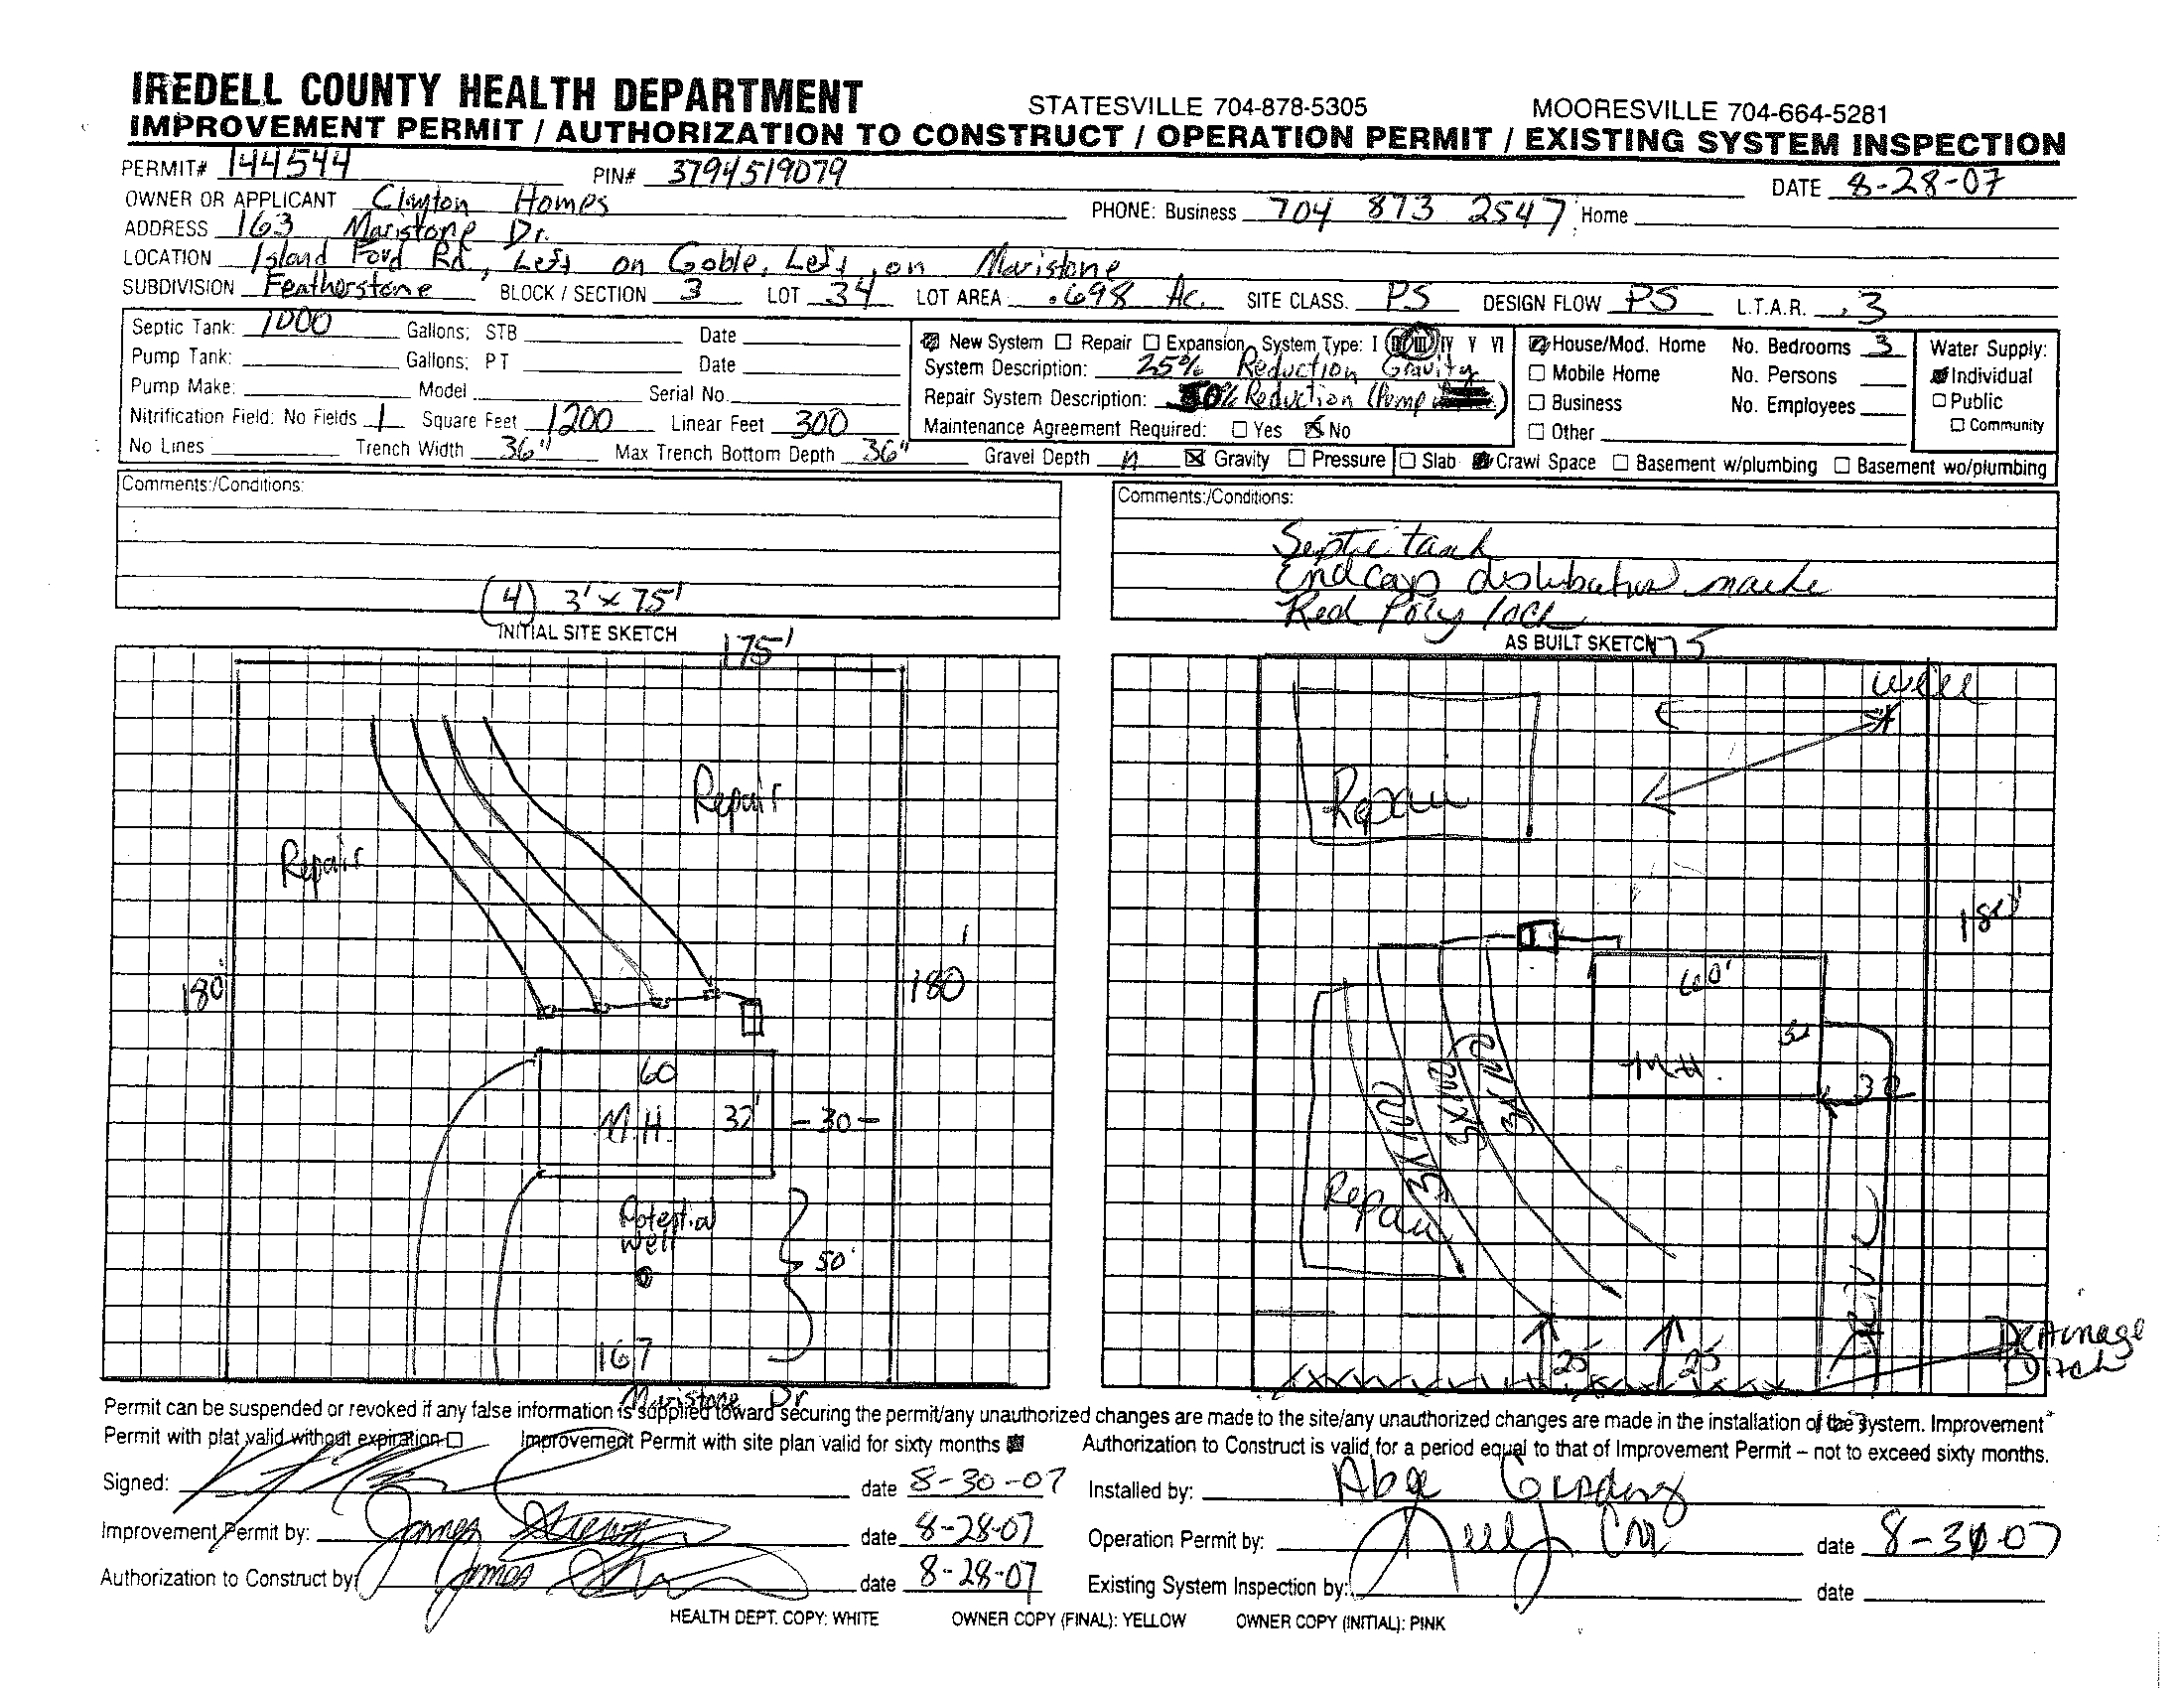 IREDELL COUNTY HEALTH DEPARTMENT STATESVILLE 704-878-5305 MOORESVILLE 704-664-5281
IMPROVEMENT PERMIT / AUTHORIZATION TO CONSTRUCT / OPERATION PERMIT / EXISTING SYSTEM INSPECTION
PERMIT# 144544 PIN# 3794519079 DATE 8-28-07
OWNER OR APPLICANT Clayton Homes PHONE: Business 704 873 2547 Home
ADDRESS 163 Maristone Dr.
LOCATION Island Ford Rd, Left on Goble, Left on Maristone
SUBDIVISION Featherstone BLOCK / SECTION 3 LOT 34 LOT AREA .698 Ac. SITE CLASS. PS DESIGN FLOW PS L.T.A.R. .3
Septic Tank: 1000 Gallons; STB Date
Pump Tank: Gallons; PT Date
Pump Make: Model Serial No.
Nitrification Field: No Fields 1 Square Feet 1200 Linear Feet 300
No Lines Trench Width 36" Max Trench Bottom Depth 36" Gravel Depth n Gravity Pressure
New System Repair Expansion System Type: I II III IV V VI
System Description: 25% Reduction Gravity
Repair System Description: 50% Reduction (Pump )
Maintenance Agreement Required: Yes No
House/Mod. Home No. Bedrooms 3
Mobile Home No. Persons
Business No. Employees
Other
Slab Crawl Space Basement w/plumbing Basement wo/plumbing
Water Supply:
Individual
Public
Community
Comments:/Conditions:
(4) 3' x 75'
Comments:/Conditions:
Septic tank
End caps distribution
Red Poly lock
INITIAL SITE SKETCH
175'
Repair
Repair
180'
180'
60
M.H. 32' -30-
Potential
Well
50'
167
Maristone Dr
AS BUILT SKETCH 175
Well
Repair
180'
60'
M.H.
32
Repair
25
25
Drainage
Ditch
Permit can be suspended or revoked if any false information is supplied toward securing the permit/any unauthorized changes are made to the site/any unauthorized changes are made in the installation of the system. Improvement
Permit with plat valid without expiration Improvement Permit with site plan valid for sixty months Authorization to Construct is valid for a period equal to that of Improvement Permit – not to exceed sixty months.
Signed: date 8-30-07 Installed by: Abe Grading
Improvement Permit by: James date 8-28-07 Operation Permit by: date 8-31-07
Authorization to Construct by: James date 8-28-07 Existing System Inspection by: date
HEALTH DEPT. COPY: WHITE OWNER COPY (FINAL): YELLOW OWNER COPY (INITIAL): PINK